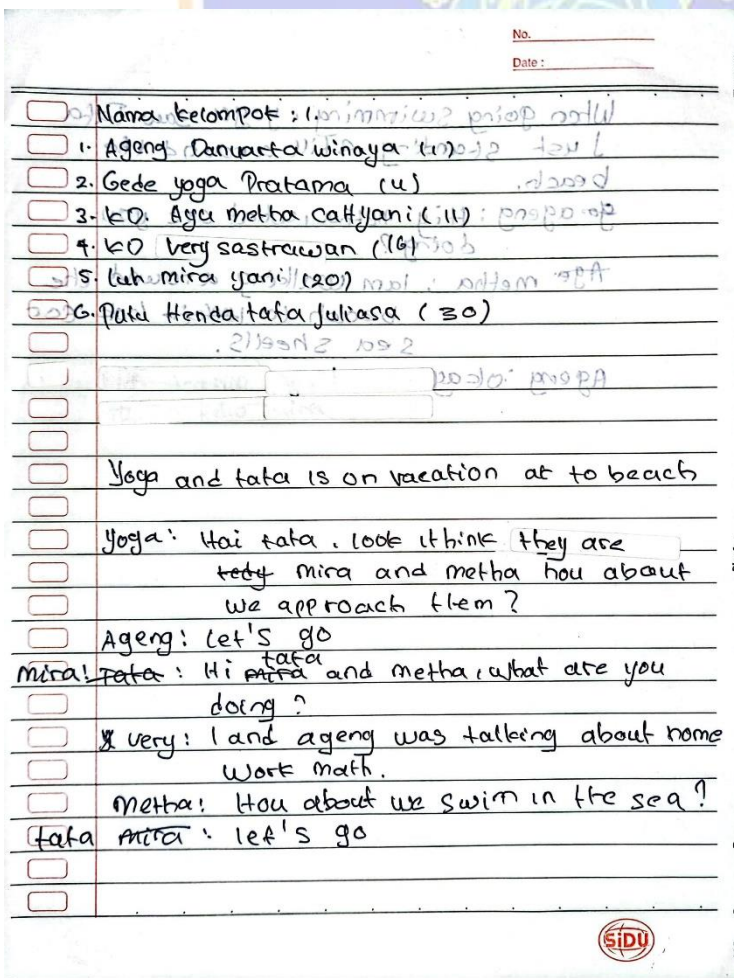 No.
Date :
Nama kelompok : 1.
1. Ageng Danuarta winaya (1)
2. Gede yoga Pratama (4)
3. KD. Ayu metha cattyani (11)
4. KD very sastrawan (16)
5. Luh mira yani (20)
6. Putu Henda tafa Juliasa (30)
Yoga and tata is on vacation at to beach
Yoga: Hai tata. look ithink they are
tedy mira and metha hou about
we approach them?
Ageng: let's go
mira: Tata : Hi mira tata and metha, what are you
doing?
very: I and ageng was talking about home
work math.
Metha: Hou about we swim in the sea?
tata mira : let's go
SiDU